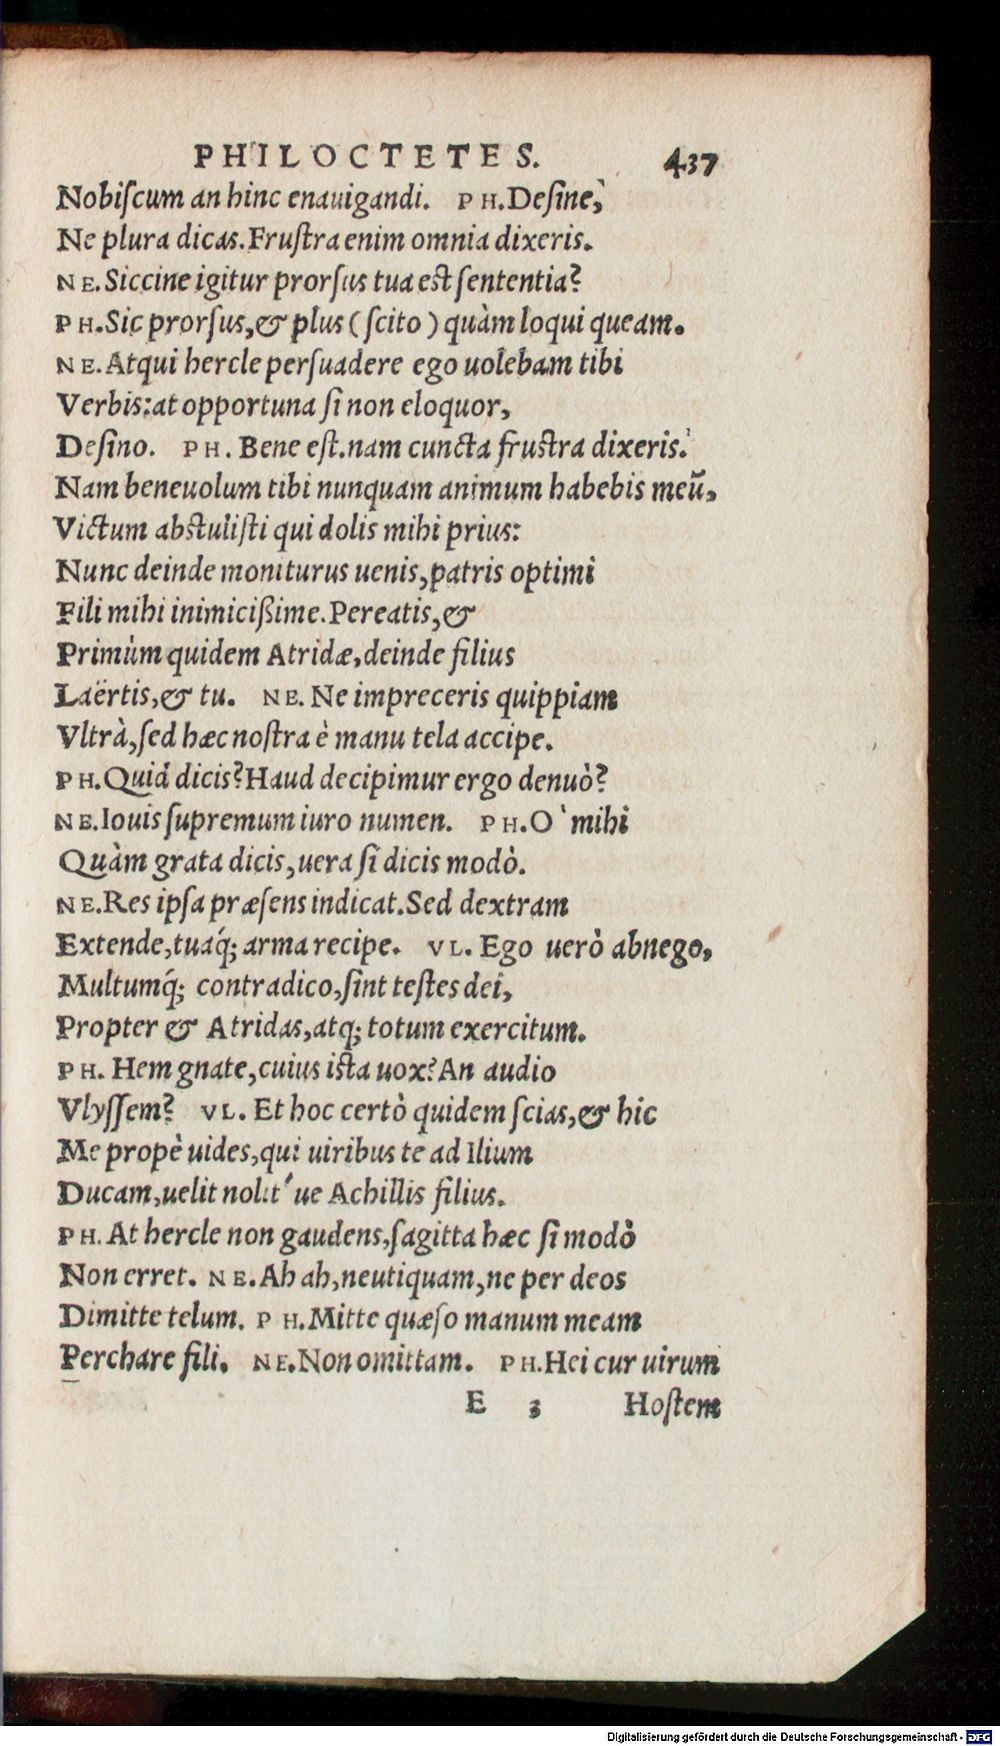 PHILOCTETES. 437
Nobiſcum an hinc enauigandi. PH. Deſine,
Ne plura dicas. Fruſtra enim omnia dixeris.
NE. Siccine igitur prorſus tua eſt ſententia?
PH. Sic prorſus, & plus (ſcito) quàm loqui queam.
NE. Atqui hercle perſuadere ego uolebam tibi
Verbis: at opportuna ſi non eloquor,
Deſino. PH. Bene eſt. nam cuncta fruſtra dixeris.
Nam beneuolum tibi nunquam animum habebis meũ,
Victum abſtuliſti qui dolis mihi prius:
Nunc deinde moniturus uenis, patris optimi
Fili mihi inimicißime. Pereatis, &
Primùm quidem Atridæ, deinde filius
Laërtis, & tu. NE. Ne impreceris quippiam
Vltrà, ſed hæc noſtra è manu tela accipe.
PH. Quid dicis? Haud decipimur ergo denuò?
NE. Iouis ſupremum iuro numen. PH. O` mihi
Quàm grata dicis, uera ſi dicis modò.
NE. Res ipſa præſens indicat. Sed dextram
Extende, tuaq́; arma recipe. VL. Ego uerò abnego,
Multumq́; contradico, ſint teſtes dei,
Propter & Atridas, atq; totum exercitum.
PH. Hem gnate, cuius iſta uox? An audio
Vlyſſem? VL. Et hoc certò quidem ſcias, & hic
Me propè uides, qui uiribus te ad Ilium
Ducam, uelit nolit´ue Achillis filius.
PH. At hercle non gaudens, ſagitta hæc ſi modò
Non erret. NE. Ah ah, neutiquam, ne per deos
Dimitte telum. PH. Mitte quæſo manum meam
Perchare fili. NE. Non omittam. PH. Hei cur uirum
E 3 Hoſtem
Digitalisierung gefördert durch die Deutsche Forschungsgemeinschaft - DFG